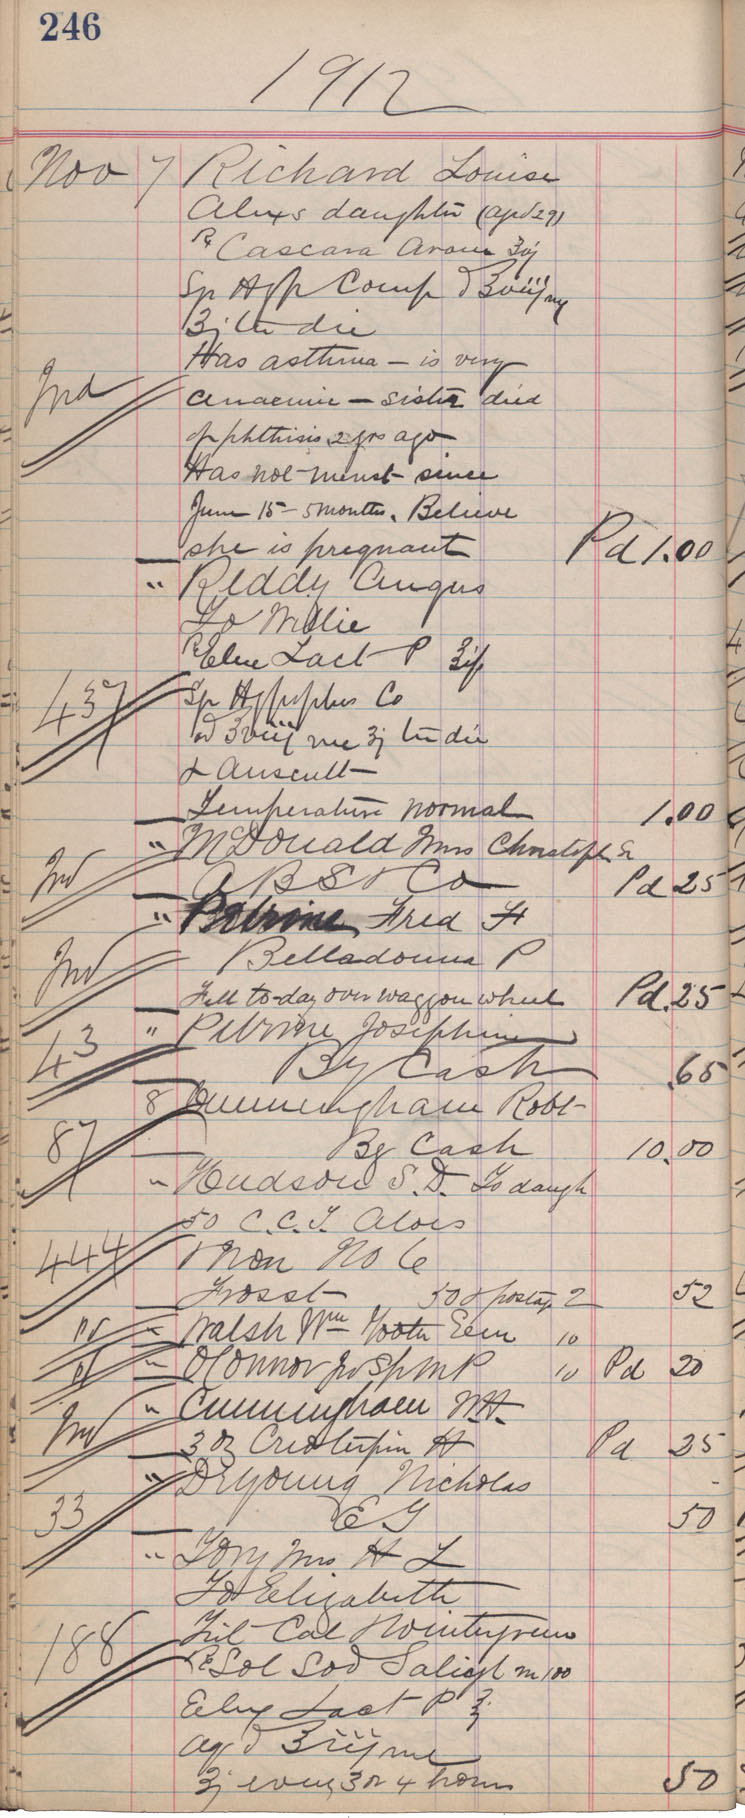 246
1912
Nov 7 Richard Louise
Alex's daughter (aged 29)
℞ Cascara Arom ʒij
Syr Hyp Comp ad ℥viij
ʒj ter die
Ind Has asthma – is very
anaemic – sister died
of phthisis 2 yrs ago
Has not menst since
June 15 – 5 months. Believe
she is pregnant Pd 1.00
" Reddy Angus
To Willie
℞ Elix Lact P
437 Syr Hypophos Co
ad ℥viij ʒj ter die
& Auscult
Temperature normal 1.00
" McDonald Mrs Christoph Sr
Ind A B S & Co Pd 25
" Petrine Fred
Ind Belladonna P
Fell to-day over waggon wheel Pd .25
" Petrine Josephine
43 By Cash .65
8 Cunningham Robt
87 By Cash 10.00
" Hudson S. D. To daugh
50 C.C.T. Aloes
444 & Iron No 6
Frosst 50 & postag 2 52
" Walsh Wm Tooth Eem 10
" OConnor Jo Sp m P 10 Pd 20
" Cunningham W.H.
Ind 3 oz Creoterpin H Pd 25
" DeYoung Nicholas
33 E G 50
" Tory Mrs H L
To Elizabeth
Cal & Wintergreen
188 ℞ Sol Sod Salicyl m 100
Elix Lact P
aq ad ℥iij
ʒj every 3 or 4 hours 50